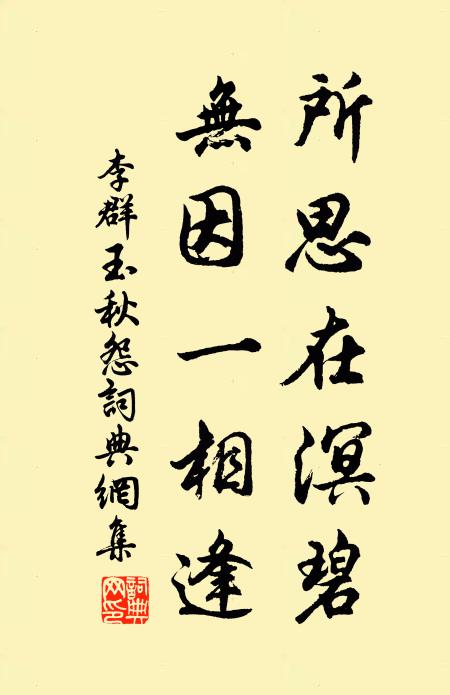 所思在溟碧
無因一相逢
李群玉秋怨詞典網集
詞典網印